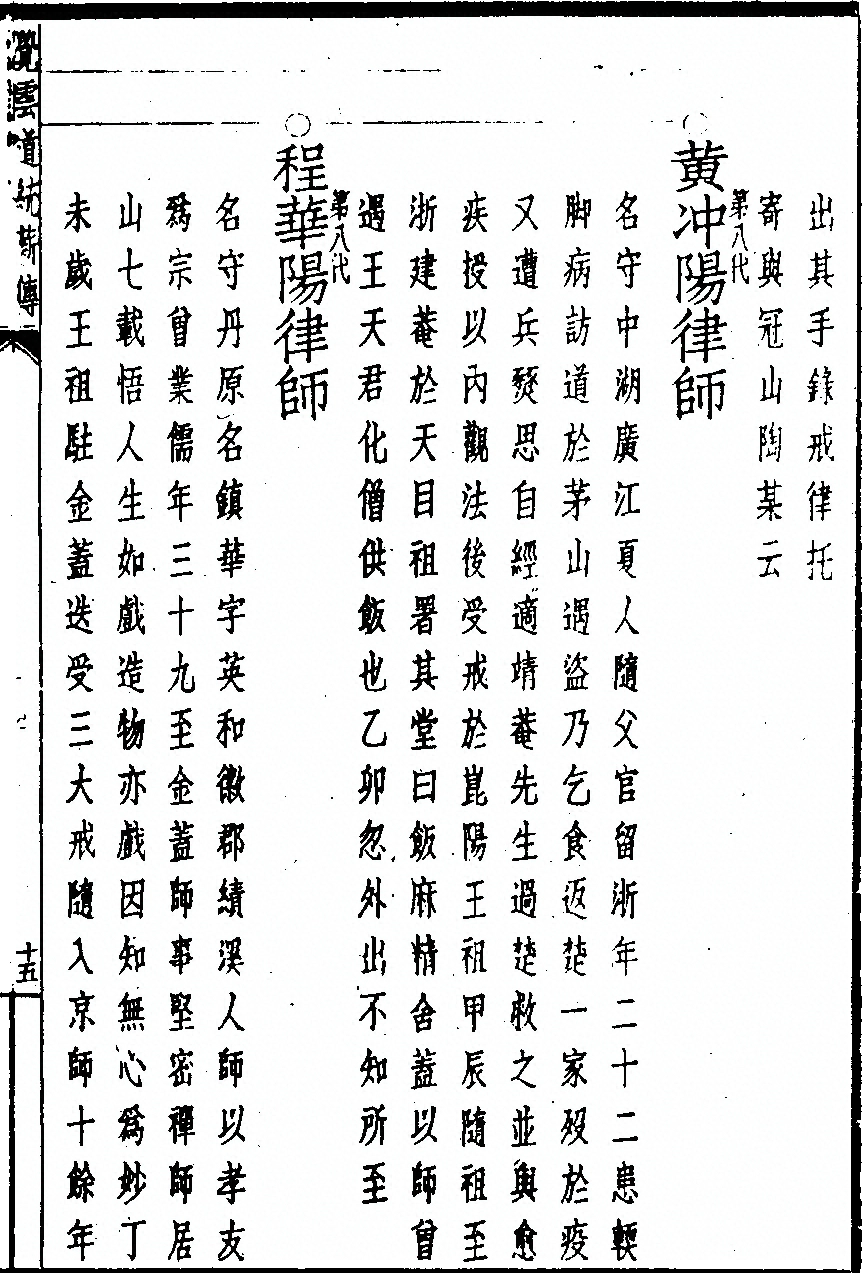 出其手錄戒律托
寄與冠山陶某云
黃冲陽律師
第八代
名守中湖廣江夏人隨父官留浙年二十二患輭
脚病訪道於茅山遇盜乃乞食返楚一家歿於疫
又遭兵燹思自經適靖菴先生過楚救之並與愈
疾授以內觀法後受戒於崑陽王祖甲辰隨祖至
浙建菴於天目祖署其堂曰飯麻精舍蓋以師曾
遇王天君化僧供飯也乙卯忽外出不知所至
程華陽律師
第八代
名守丹原名鎮華字英和徽郡績溪人師以孝友
爲宗曾業儒年三十九至金蓋師事堅密禪師居
山七載悟人生如戲造物亦戲因知無心爲妙丁
未歲王祖駐金蓋迭受三大戒隨入京師十餘年
雲道統薪傳
十五